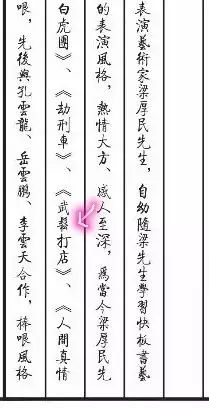 表演藝術家梁厚民先生，自幼隨梁先生學習快板書藝
的表演風格，熱情大方、感人至深，爲當今梁厚民先
白虎團》、《劫刑車》、《武鬆打店》、《人間真情
哏，先後與孔雲龍、岳雲鵬、李雲天合作，捧哏風格